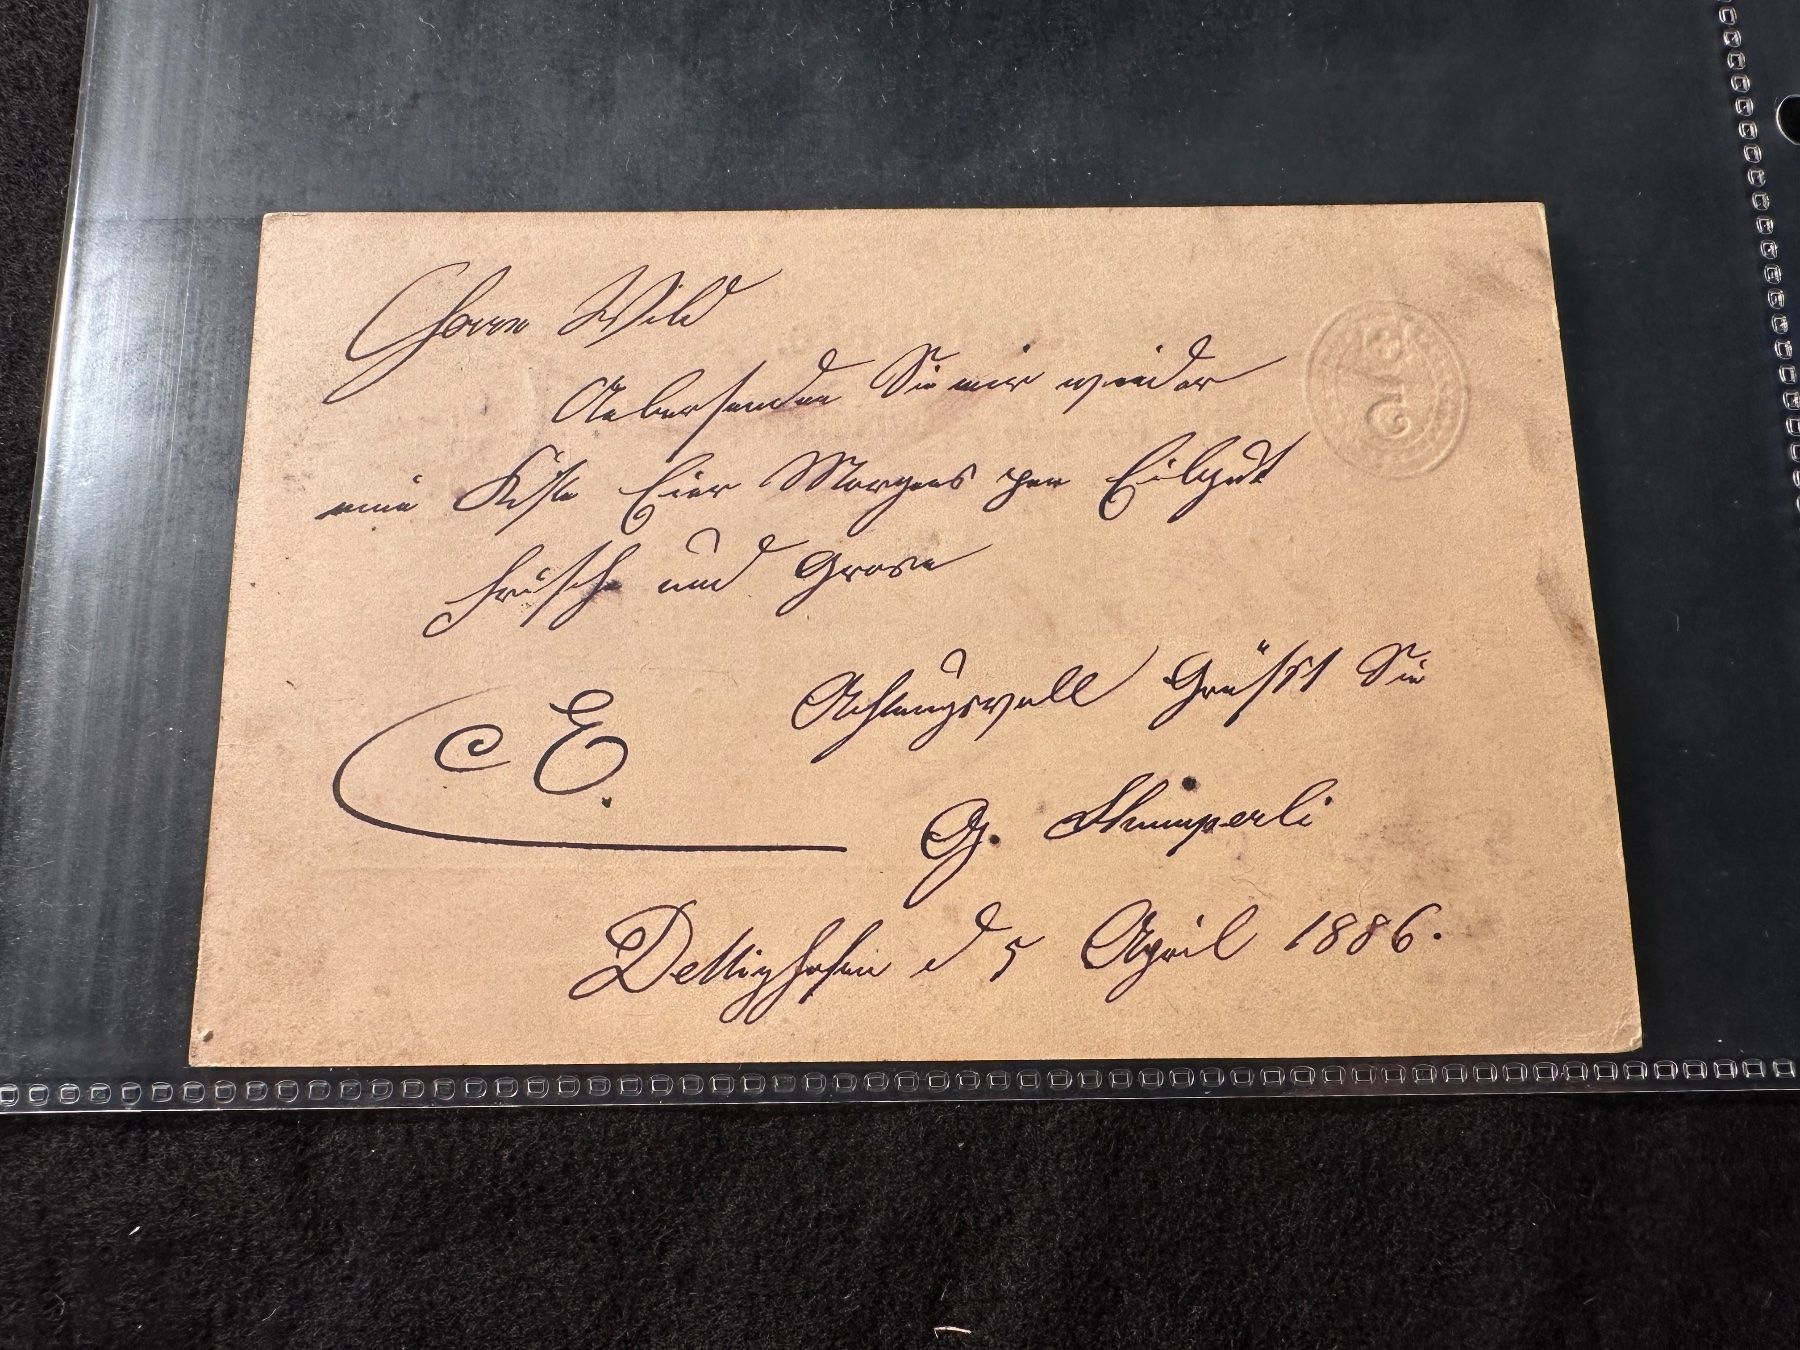 Herrn Wild
Uebersenden Sie mir wieder
eine Kiste Eier Morgens per Eilgut
frische und Grose
Achtungsvoll Grüsst Sie
C E.
G. Stumperli
Dettighofen d 5 April 1886.
5